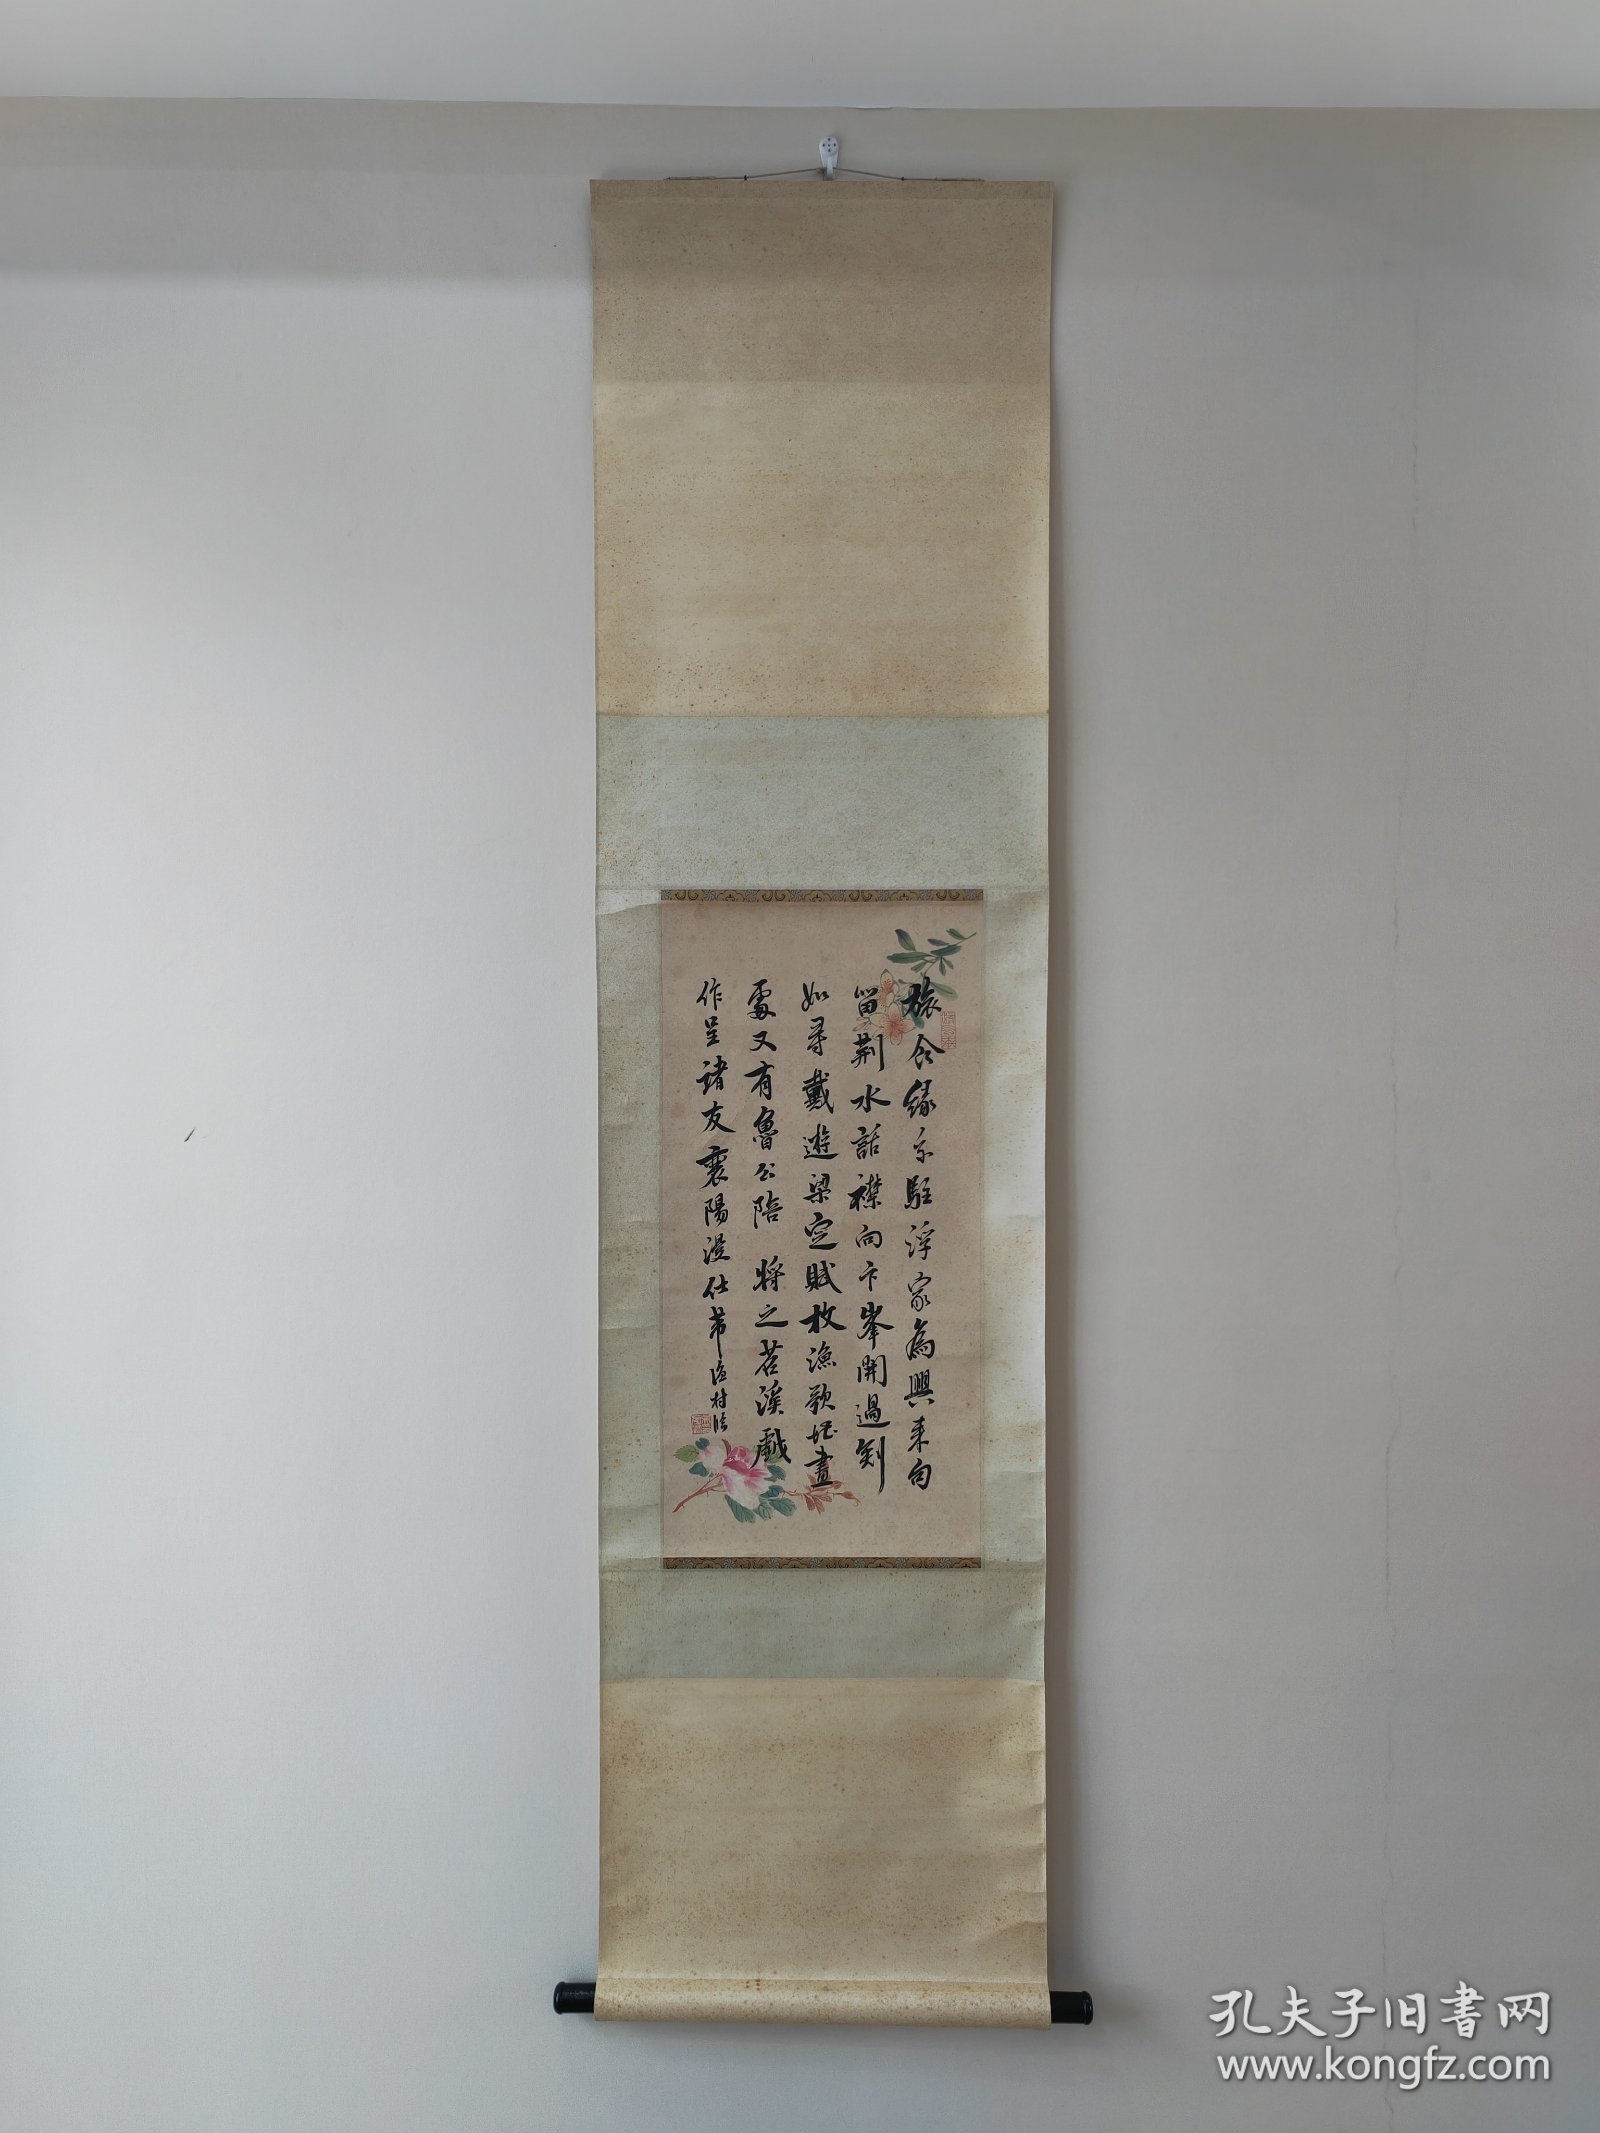 旅食緣交駐浮家為興來句
留荆水話襟向卞峯開過剡
如尋戴遊梁定賦枚漁歌堪畫
處又有魯公陪 將之苕溪戲
作呈諸友襄陽漫仕芾 漁村臨
孔夫子旧書网
www.kongfz.com